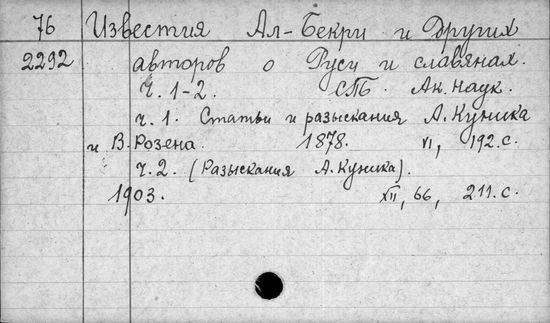 76 Известия Ал-Бекри и других
2292 авторов о Руси и славянах.
Ч. 1-2. СПБ. Ак. наук.
ч. 1. Статьи и разыскания А. Куника
и В. Розена. 1878. VI, 192.с.
ч. 2. (Разыскания А. Куника).
1903. XII, 66, 211.с.